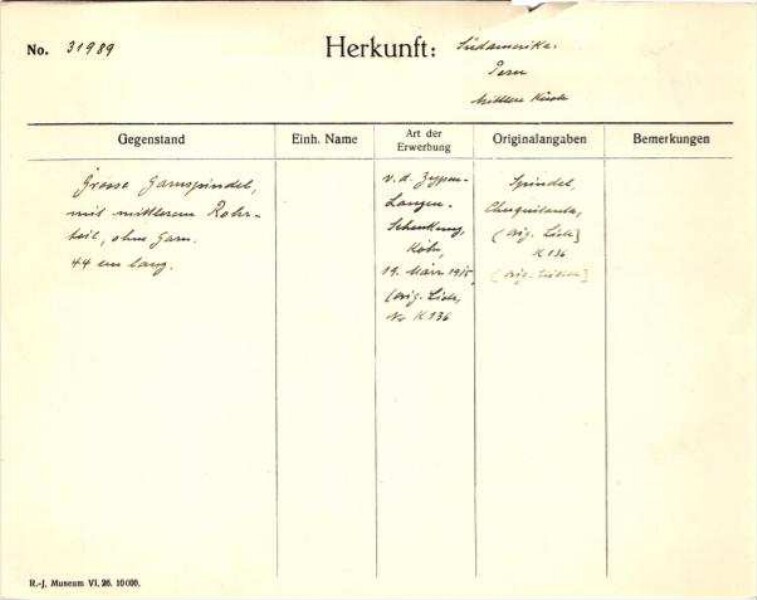 No. 31989
Herkunft: Südamerika.
Peru
Mittlere Küste
Gegenstand
Einh. Name
Art der
Erwerbung
Originalangaben
Bemerkungen
Grosse Garnspindel,
mit mittlerem Rohr-
teil, ohne Garn.
44 cm lang.
v. d. Zypen-
Langen-
Schenkung,
Köln,
19. März 1915,
(orig. Liste,
No K 136
Spindel,
Chuquitanta,
(orig. Liste)
K 136
(orig. )
R.-J. Museum VI. 26. 10000.